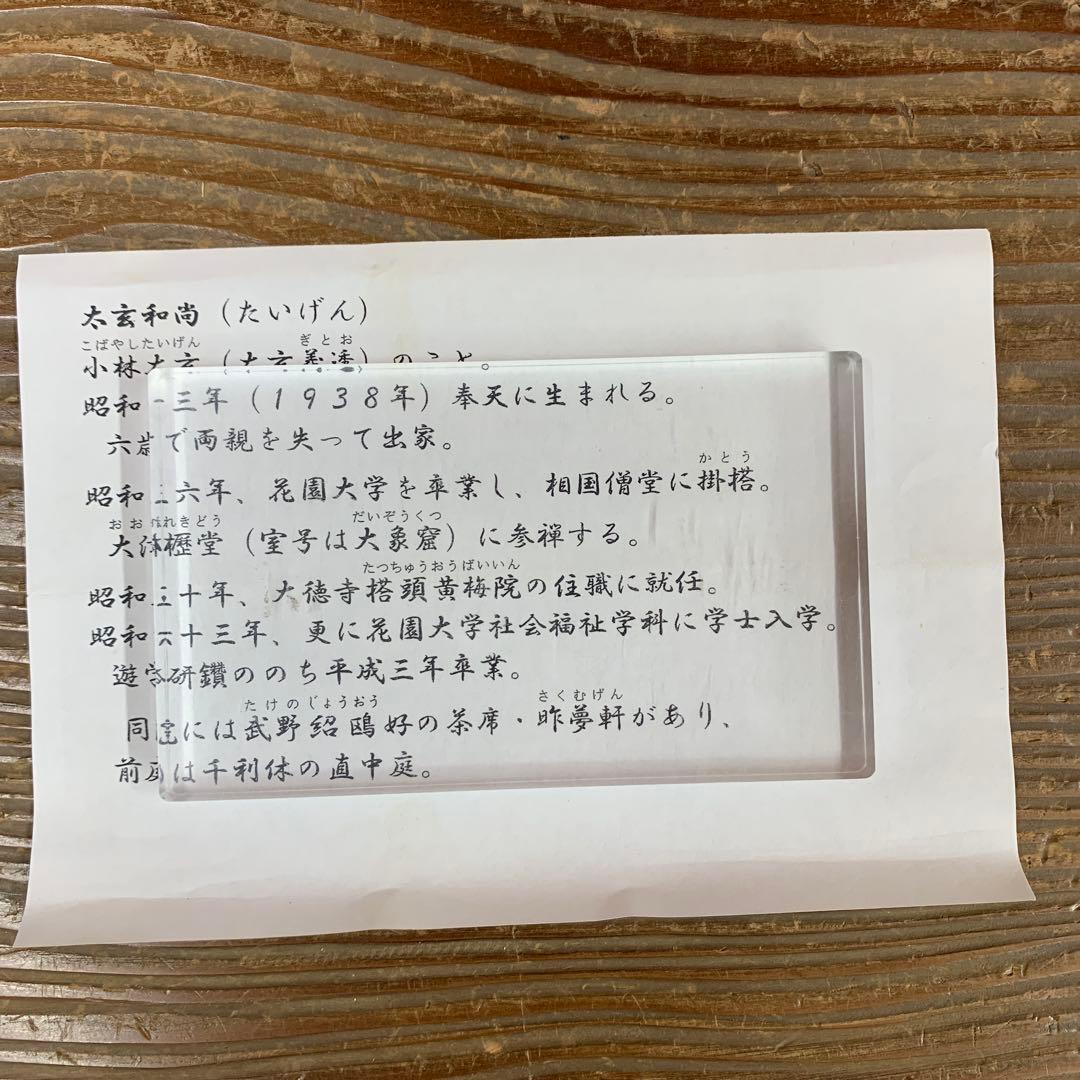 太玄和尚（たいげん）
こばやしたいげん ぎとお
小林太玄（太玄義透）のこと。
昭和十三年（1938年）奉天に生まれる。
六歳で両親を失って出家。
かとう
昭和 六年、花園大学を卒業し、相国僧堂に掛搭。
おお れきどう だいぞうくつ
大津櫪堂（室号は大象窟）に参禅する。
たっちゅうおうばいいん
昭和五十年、大徳寺搭頭黄梅院の住職に就任。
昭和六十三年、更に花園大学社会福祉学科に学士入学。
遊学研鑽ののち平成三年卒業。
たけのじょうおう さくむげん
同院には武野紹鴎好の茶席・昨夢軒があり、
前庭は千利休の直中庭。